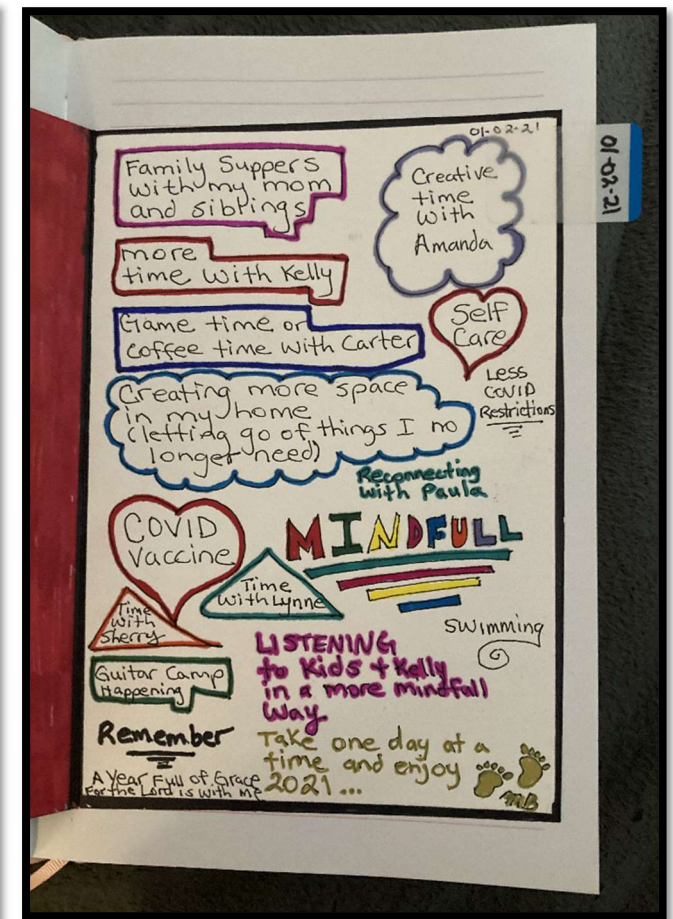 01-02-21
01-02-21
Family Suppers
with my mom
and siblings
Creative
time
with
Amanda
more
time with Kelly
Game time or
coffee time with Carter
Self
Care
Less
COVID
Restrictions
Creating more space
in my home
(letting go of things I no
longer need)
Reconnecting
with Paula
COVID
vaccine
MINDFULL
Time
with Lynne
Time
with
Sherry
swimming
Guitar Camp
Happening
LISTENING
to Kids + Kelly
in a more mindfull
way
Remember
A Year Full of Grace
For the Lord is with me
Take one day at a
time and enjoy
2021...
MB